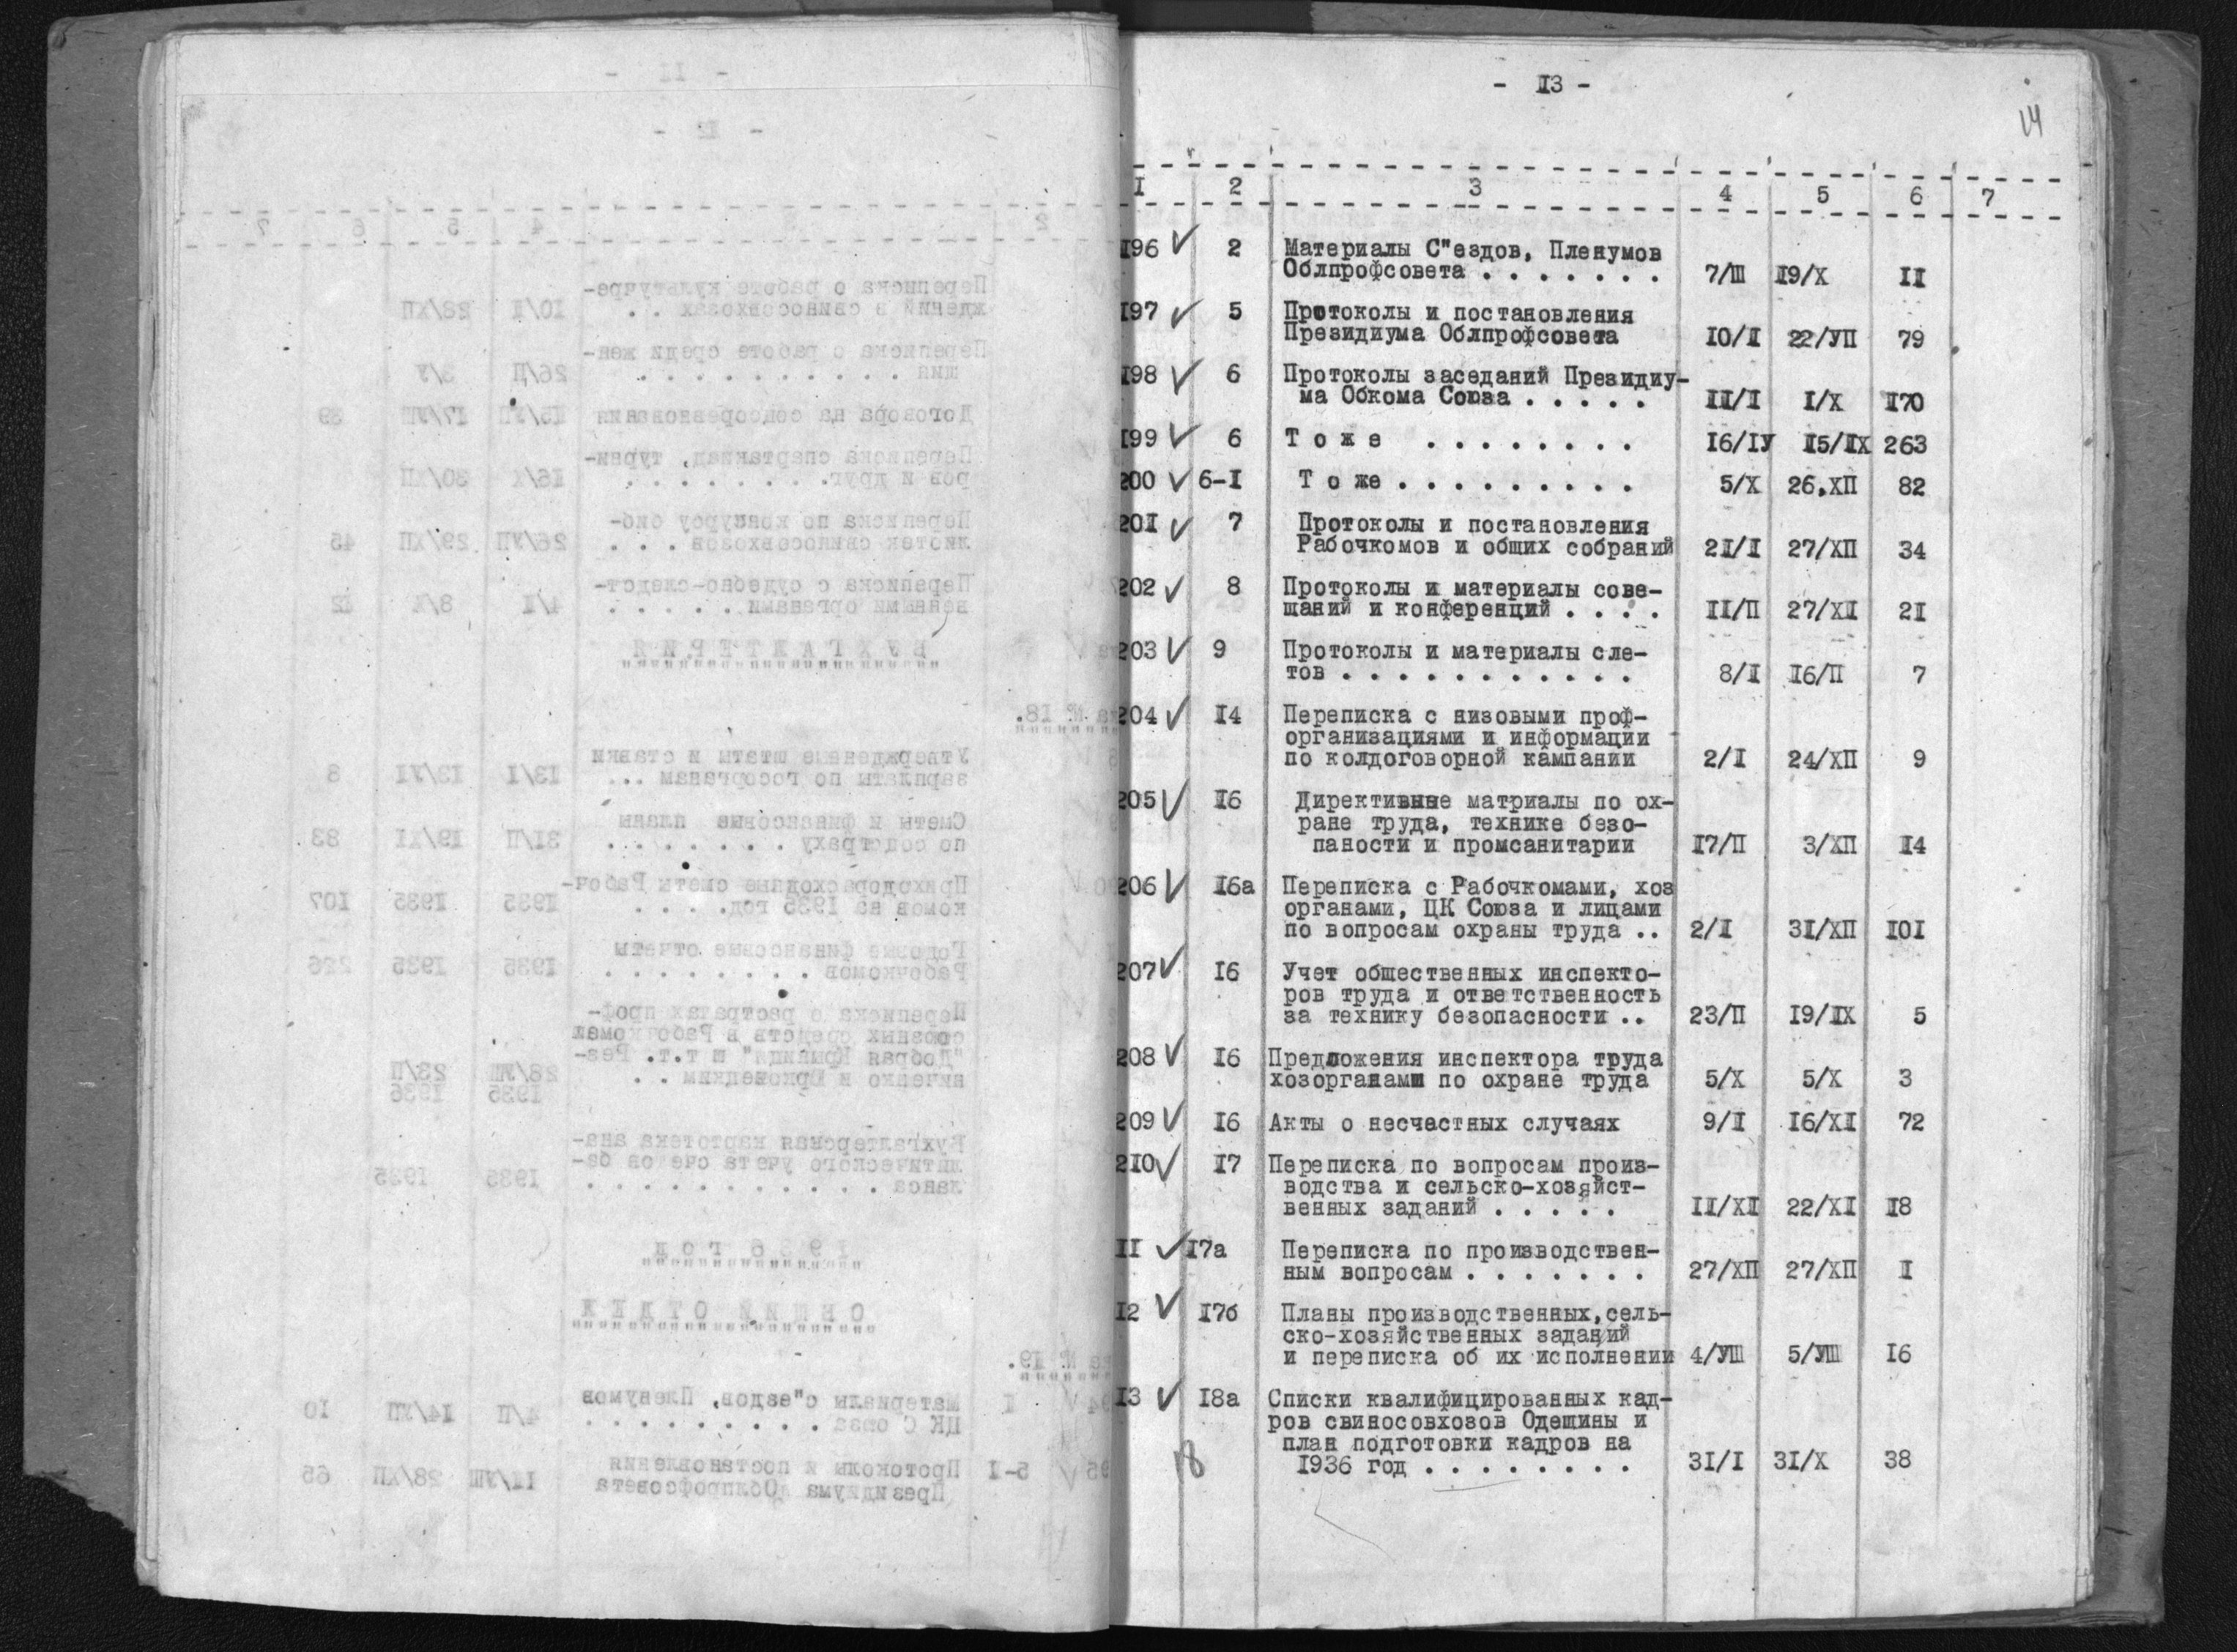 - I3 -
14
I 2 3 4 5 6 7
I96 2 Материалы С"ездов, Пленумов
Облпрофсовета . . . . . . . 7/Ш I9/X II
I97 5 Протоколы и постановления
Президиума Облпрофсовета I0/I 22/УП 79
I98 6 Протоколы заседаний Президиу-
ма Обкома Союза . . . . . II/I I/X I70
I99 6 Т о ж е . . . . . . . . I6/IУ I5/IX 263
200 6-I Т о же . . . . . . . . . 5/X 26.XП 82
20I 7 Протоколы и постановления
Рабочкомов и общих собраний 2I/I 27/XП 34
202 8 Протоколы и материалы сове-
щаний и конференций . . . . II/П 27/XI 2I
203 9 Протоколы и материалы сле-
тов . . . . . . . . . . . 8/I I6/П 7
204 I4 Переписка с низовыми проф-
организациями и информации
по колдоговорной кампании 2/I 24/XП 9
205 I6 Директивные матриалы по ох-
ране труда, технике безо-
паности и промсанитарии I7/П 3/XП I4
206 I6а Переписка с Рабочкомами, хоз
органами, ЦК Союза и лицами
по вопросам охраны труда .. 2/I 3I/XП I0I
207 I6 Учет общественных инспекто-
ров труда и ответственность
за технику безопасности .. 23/П I9/IX 5
208 I6 Предложения инспектора труда
хозорганами по охране труда 5/X 5/X 3
209 I6 Акты о несчастных случаях 9/I I6/XI 72
2I0 I7 Переписка по вопросам произ-
водства и сельско-хозяйст-
венных заданий . . . . . II/XI 22/XI I8
II I7а Переписка по производствен-
ным вопросам . . . . . . . 27/XП 27/XП I
I2 I7б Планы производственных,сель-
ско-хозяйственных заданий
и переписка об их исполнении 4/УШ 5/УШ I6
I3 I8а Списки квалифицированных кад-
ров свиносовхозов Одещины и
план подготовки кадров на
I936 год . . . . . . . . 3I/I 3I/X 38
18